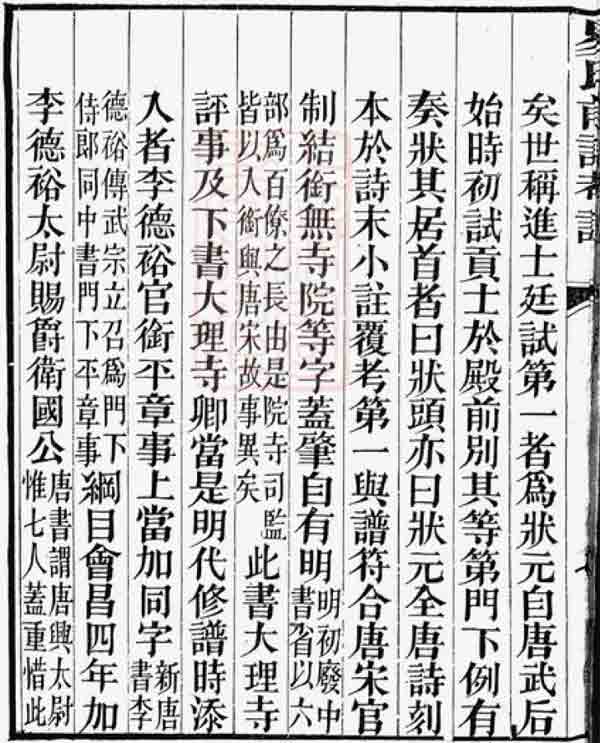 矣世稱進士廷試第一者爲狀元自唐武后
始時初試貢士於殿前別其等第門下例有
奏狀其居首者曰狀頭亦曰狀元全唐詩刻
本於詩末小註覆考第一與譜符合唐宋官
制結銜無寺院等字蓋肇自有明明初廢中書省以六
部爲百僚之長由是院寺司監皆以入銜與唐宋故事異矣此書大理寺
評事及下書大理寺卿當是明代修譜時添
入者李德裕官銜平章事上當加同字新唐書李
德裕傳武宗立召爲門下侍郎同中書門下平章事綱目會昌四年加
李德裕太尉賜爵衛國公唐書謂唐興太尉惟七人蓋重惜此